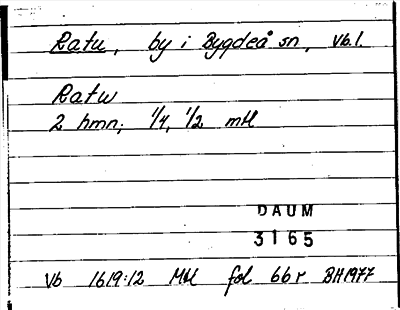 Ratu, by i Bygdeå sn, Vb.l.
Ratw
2 hmn; 1/4, 1/2 mtl
DAUM
3165
Vb 1619:12 Mtl fol 66r BH1977